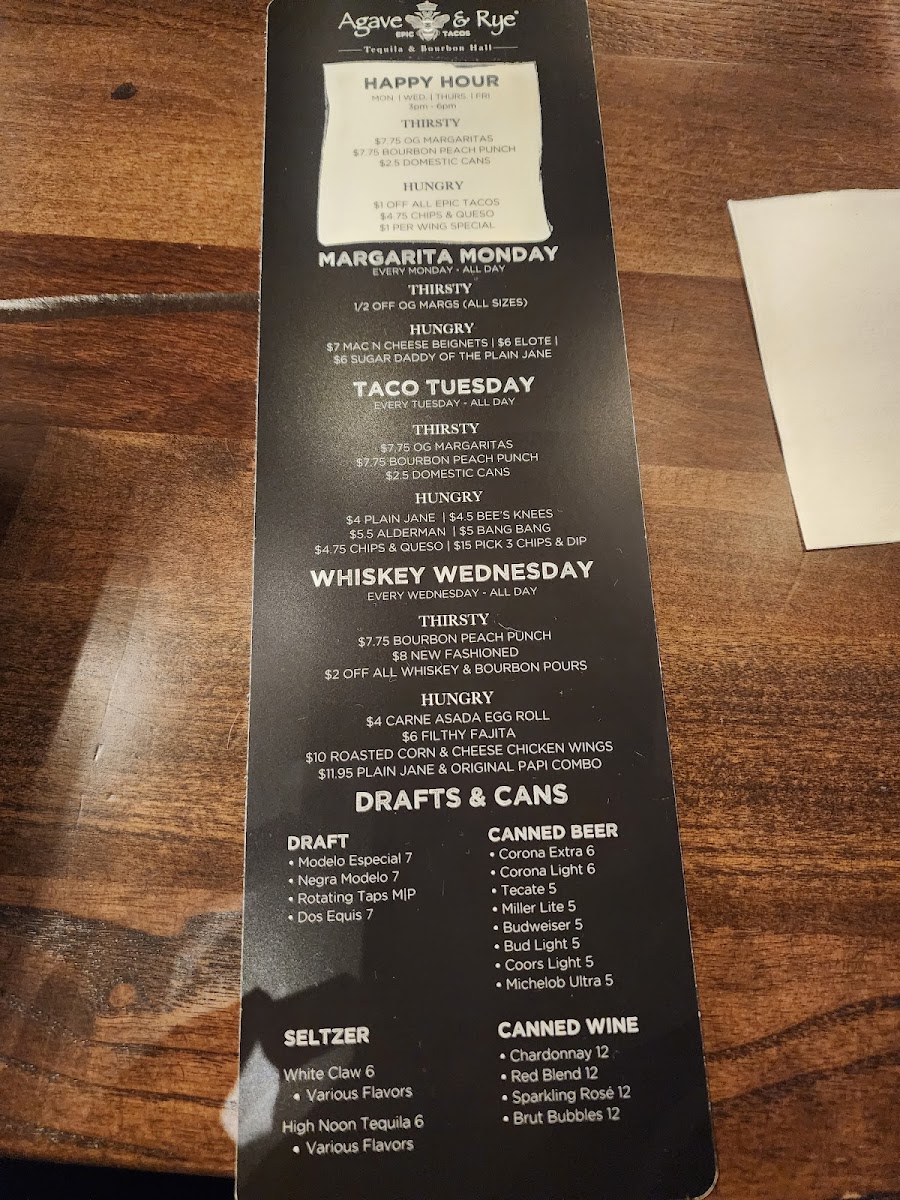 Agave & Rye®
EPIC TACOS
Tequila & Bourbon Hall
HAPPY HOUR
MON. | WED. | THURS. | FRI.
3pm - 6pm
THIRSTY
$7.75 OG MARGARITAS
$7.75 BOURBON PEACH PUNCH
$2.5 DOMESTIC CANS
HUNGRY
$1 OFF ALL EPIC TACOS
$4.75 CHIPS & QUESO
$1 PER WING SPECIAL
MARGARITA MONDAY
EVERY MONDAY - ALL DAY
THIRSTY
1/2 OFF OG MARGS (ALL SIZES)
HUNGRY
$7 MAC N CHEESE BEIGNETS | $6 ELOTE |
$6 SUGAR DADDY OF THE PLAIN JANE
TACO TUESDAY
EVERY TUESDAY - ALL DAY
THIRSTY
$7.75 OG MARGARITAS
$7.75 BOURBON PEACH PUNCH
$2.5 DOMESTIC CANS
HUNGRY
$4 PLAIN JANE | $4.5 BEE'S KNEES
$5.5 ALDERMAN | $5 BANG BANG
$4.75 CHIPS & QUESO | $15 PICK 3 CHIPS & DIP
WHISKEY WEDNESDAY
EVERY WEDNESDAY - ALL DAY
THIRSTY
$7.75 BOURBON PEACH PUNCH
$8 NEW FASHIONED
$2 OFF ALL WHISKEY & BOURBON POURS
HUNGRY
$4 CARNE ASADA EGG ROLL
$6 FILTHY FAJITA
$10 ROASTED CORN & CHEESE CHICKEN WINGS
$11.95 PLAIN JANE & ORIGINAL PAPI COMBO
DRAFTS & CANS
DRAFT
• Modelo Especial 7
• Negra Modelo 7
• Rotating Taps M|P
• Dos Equis 7
CANNED BEER
• Corona Extra 6
• Corona Light 6
• Tecate 5
• Miller Lite 5
• Budweiser 5
• Bud Light 5
• Coors Light 5
• Michelob Ultra 5
SELTZER
White Claw 6
• Various Flavors
High Noon Tequila 6
• Various Flavors
CANNED WINE
• Chardonnay 12
• Red Blend 12
• Sparkling Rosé 12
• Brut Bubbles 12